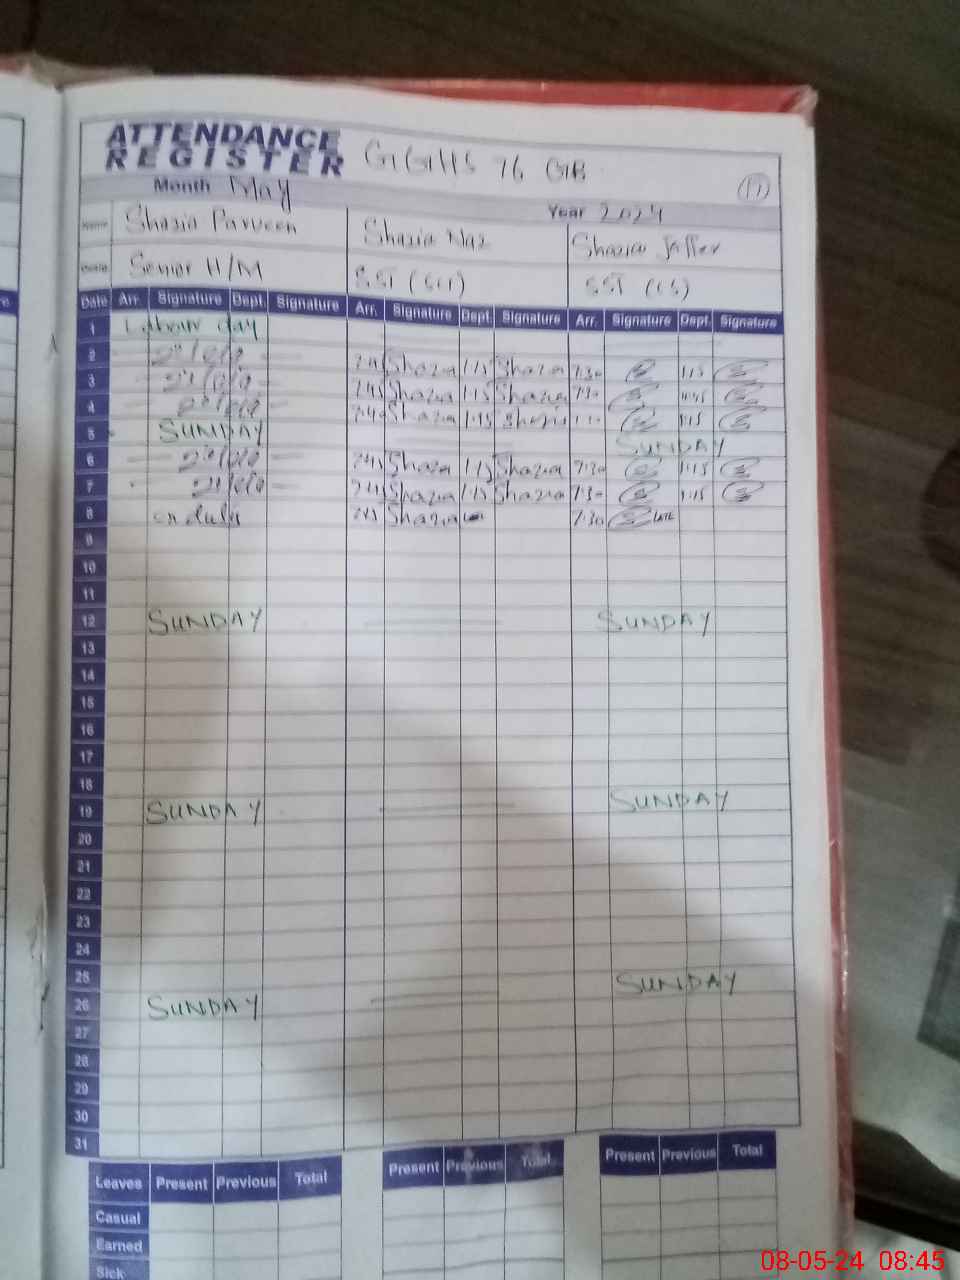 ATTENDANCE
REGISTER GGHS 76 GB
17
Month May Year 2024
Name Shazia Parveen Shazia Naz Shazia Jaffer
Senior H/M SST (Sci) SST (CS)
Date Arr. Signature Dept. Signature Arr. Signature Dept. Signature Arr. Signature Dept. Signature
1 Labour day
2 Shazia 1:15 Shazia 7:30 1:15
3 Shazia 1:15 Shazia 7:30
4 Shazia 1:15 Shazia 1:15
5 SUNDAY SUNDAY
6 Shazia 1:15 Shazia 7:30 1:15
7 Shazia 1:15 Shazia 7:30 1:15
8 on duty Shazia 7:30 LATE
9
10
11
12 SUNDAY SUNDAY
13
14
15
16
17
18
19 SUNDAY SUNDAY
20
21
22
23
24
25
26 SUNDAY SUNDAY
27
28
29
30
31
Leaves Present Previous Total Present Previous Total Present Previous Total
Casual
Earned
Sick
08-05-24 08:45